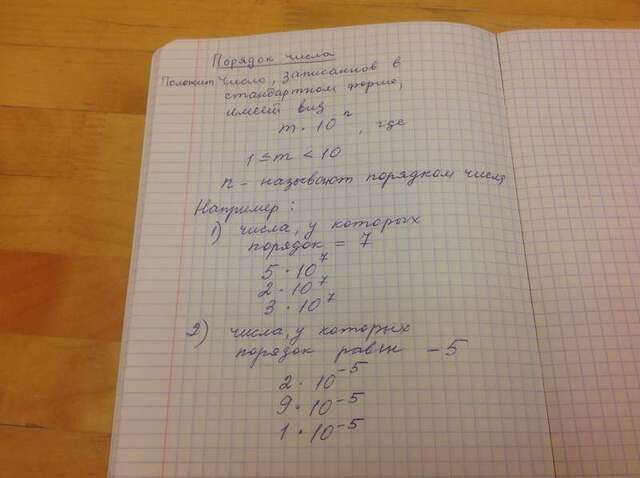 Порядок числа
Положит. Число, записанное в
стандартном форме,
имеет вид
m · 10ⁿ, где
1 ≤ m < 10
n – называют порядком числа
Например:
1) числа, у которых
порядок = 7
5 · 10⁷
2 · 10⁷
3 · 10⁷
2) числа, у которых
порядок равен –5
2 · 10⁻⁵
9 · 10⁻⁵
1 · 10⁻⁵